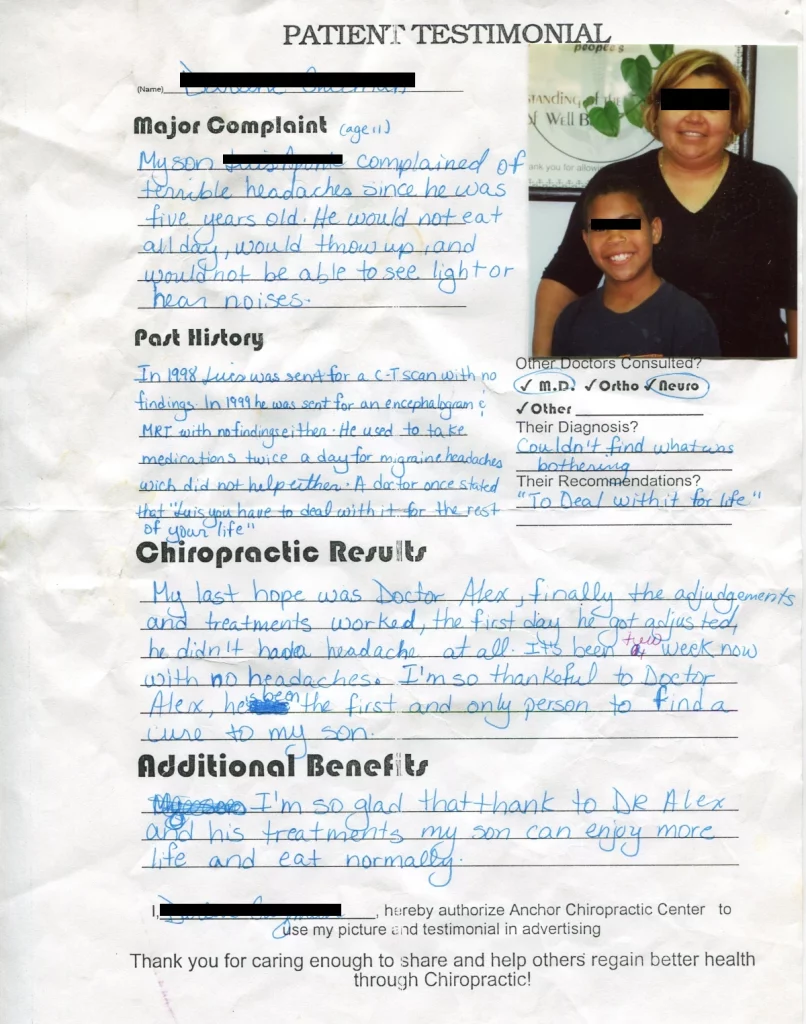 PATIENT TESTIMONIAL
people's
TANDING of the
of Well B
ank you for allow
(Name)
Major Complaint (age 11)
My son complained of
terrible headaches since he was
five years old. He would not eat
all day, would throw up, and
would not be able to see light or
hear noises.
Past History
In 1998 Luis was sent for a C-T scan with no
findings. In 1999 he was sent for an encephalogram &
MRT with no findings either. He used to take
medications twice a day for migraine headaches
wich did not help either. A doctor once stated
that "Luis you have to deal with it for the rest
of your life"
Other Doctors Consulted?
✓ M.D. ✓ Ortho ✓ Neuro
✓ Other
Their Diagnosis?
Couldn't find what was
bothering
Their Recommendations?
"To Deal with it for life"
Chiropractic Results
My last hope was Doctor Alex, finally the adjudgements
and treatments worked, the first day he got adjusted,
he didn't had a headache at all. It's been two week now
with no headaches. I'm so thankeful to Doctor
Alex, he's been the first and only person to find a
cure to my son.
Additional Benefits
I'm so glad that thank to DR Alex
and his treatments my son can enjoy more
life and eat normally.
I, , hereby authorize Anchor Chiropractic Center to
use my picture and testimonial in advertising
Thank you for caring enough to share and help others regain better health
through Chiropractic!